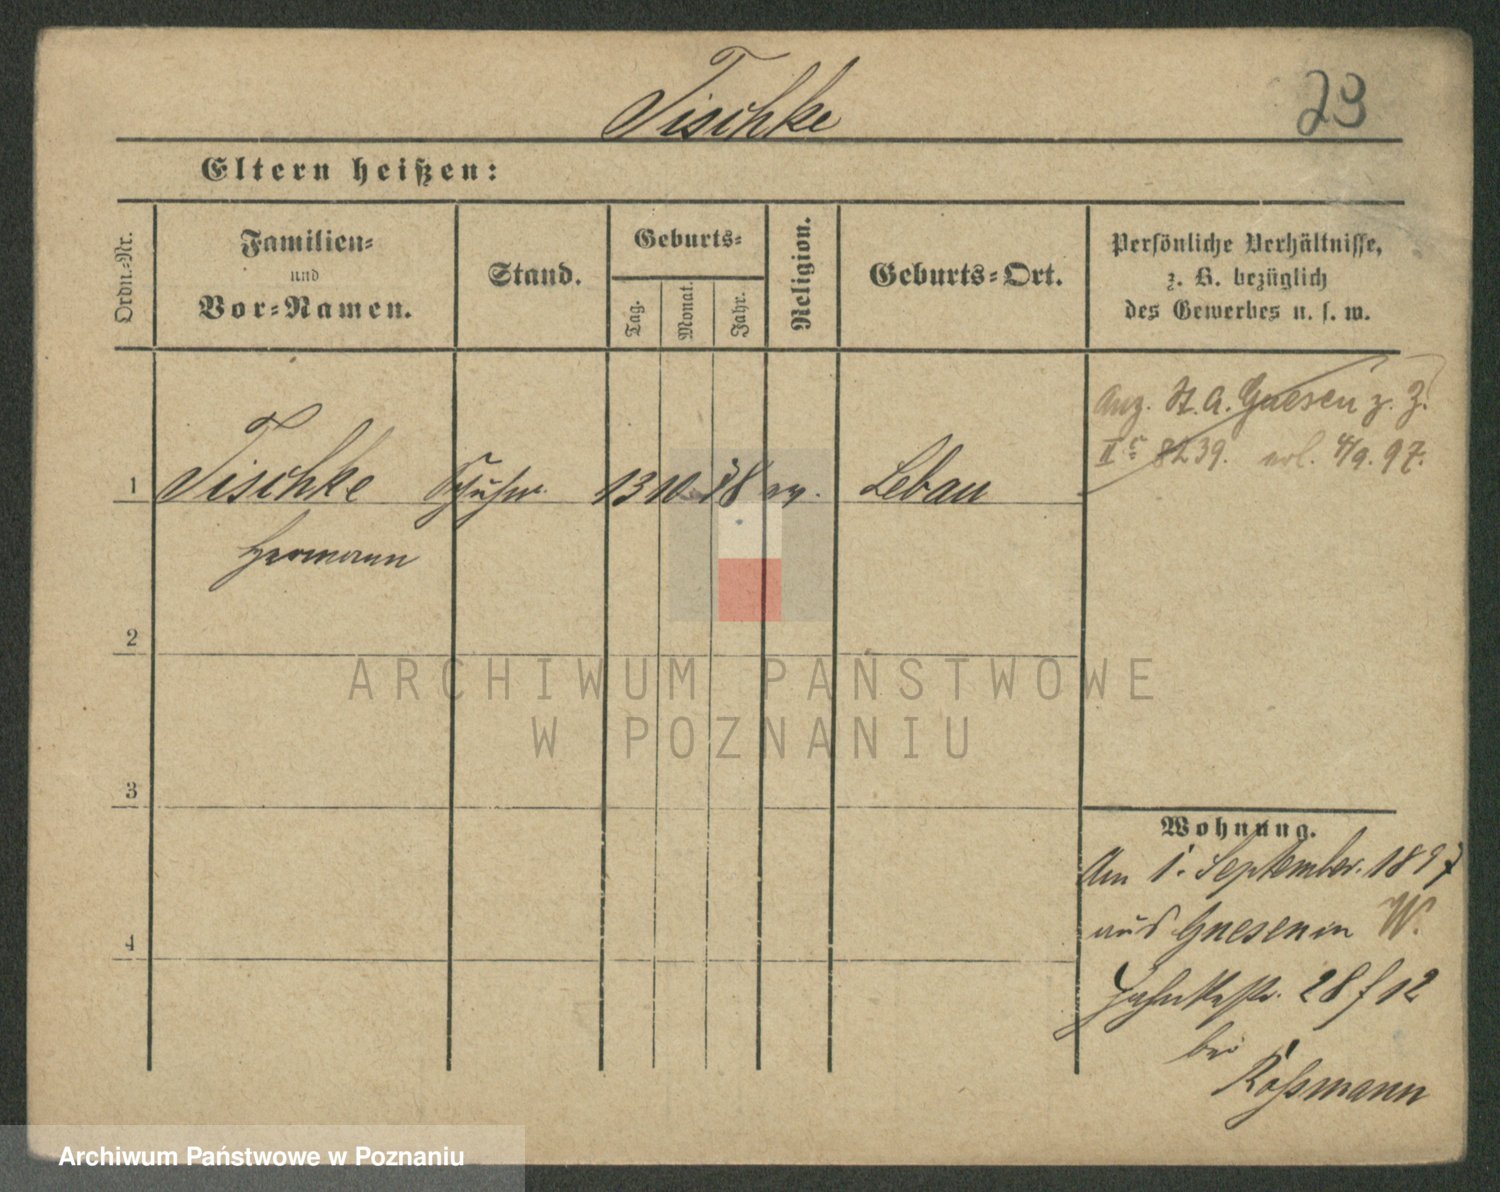 Tischke
23
Eltern heißen:
Ordn.-Nr.
Familien-
und
Vor-Namen.
Stand.
Geburts-
Tag.
Monat.
Jahr.
Religion.
Geburts-Ort.
Persönliche Verhältnisse,
z. B. bezüglich
des Gewerbes u. s. w.
1 Tischke 13 10 78 ev. Lebau
Hermann
Anz. St. A. Gnesen z. Z.
II c 8239. erl. 4/9. 97.
2
3
4
Wohnung.
Am 1. September. 1897
aus Gnesen in W.
28 f 12
bei
Roßmann
ARCHIWUM PAŃSTWOWE
W POZNANIU
Archiwum Państwowe w Poznaniu